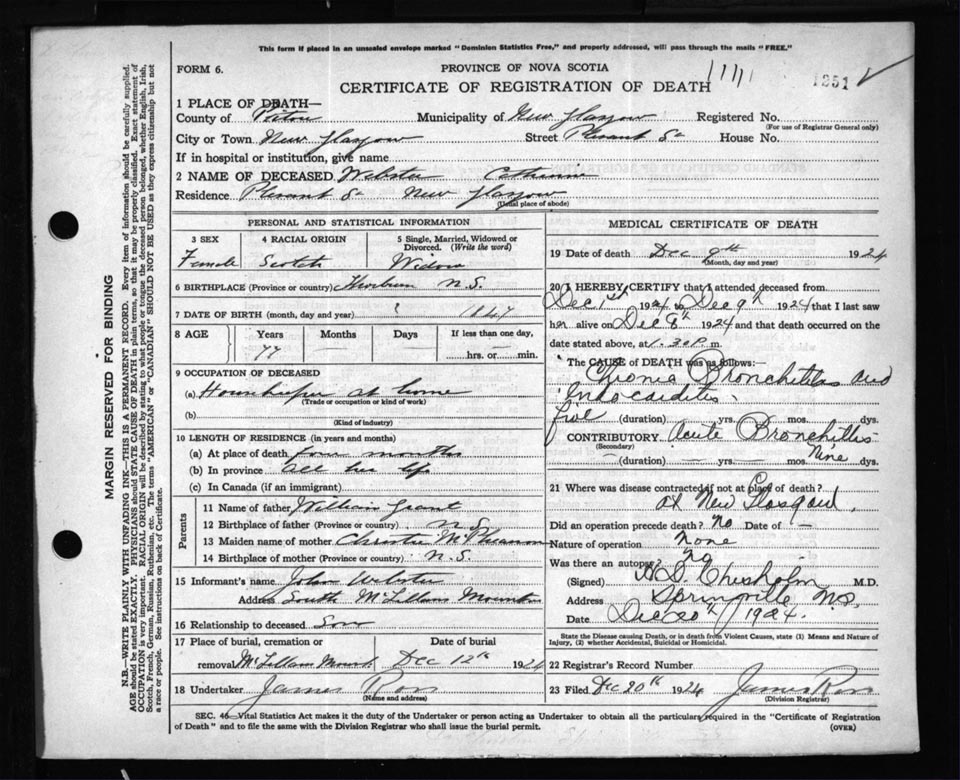 This form if placed in an unsealed envelope marked "Dominion Statistics Free," and properly addressed, will pass through the mails "FREE."
FORM 6.
PROVINCE OF NOVA SCOTIA
CERTIFICATE OF REGISTRATION OF DEATH
1251
1 PLACE OF DEATH—
County of Pictou Municipality of New Glasgow Registered No.
(For use of Registrar General only)
City or Town New Glasgow Street Plesant St House No.
If in hospital or institution, give name
2 NAME OF DECEASED Webster Catherine
Residence Plesant St New Glasgow
(Usual place of abode)
PERSONAL AND STATISTICAL INFORMATION
3 SEX 4 RACIAL ORIGIN 5 Single, Married, Widowed or Divorced. (Write the word)
Female Scotch Widow
6 BIRTHPLACE (Province or country) Thorburn N.S.
7 DATE OF BIRTH (month, day and year) ? 1847
8 AGE Years Months Days If less than one day,
77 — hrs. or min.
9 OCCUPATION OF DECEASED
(a) Housekeeper at home
(Trade or occupation or kind of work)
(b)
(Kind of industry)
10 LENGTH OF RESIDENCE (in years and months)
(a) At place of death four months
(b) In province all her life
(c) In Canada (if an immigrant)
Parents
11 Name of father William Grant
12 Birthplace of father (Province or country) N.S.
13 Maiden name of mother Christie McPhearson
14 Birthplace of mother (Province or country) N.S.
15 Informant's name John Webster
Address South McLellans Mountain
16 Relationship to deceased Son
17 Place of burial, cremation or removal McLellans Mount Date of burial Dec 12th 1924
18 Undertaker James Ross
(Name and address)
MEDICAL CERTIFICATE OF DEATH
19 Date of death Dec 9th 1924
(Month, day and year)
20 I HEREBY CERTIFY that I attended deceased from
Dec 1st 1924 to Dec 9th 1924 that I last saw
her alive on Dec 8th 1924 and that death occurred on the
date stated above, at 1.30 P. m.
The CAUSE OF DEATH was as follows:—
Chronic Bronchitis and
Endocarditis.
five (duration) yrs. mos. dys.
CONTRIBUTORY Acute Bronchitis
(Secondary)
(duration) yrs. mos. Nine dys.
21 Where was disease contracted if not at Place of death?
at New Glasgow.
Did an operation precede death? No Date of —
Nature of operation None
Was there an autopsy? No
(Signed) Chisholm M.D.
Address Springville N.S.
Date Dec 20th 1924.
State the Disease causing Death, or in death from Violent Causes, state (1) Means and Nature of Injury, (2) whether Accidental, Suicidal or Homicidal.
22 Registrar's Record Number
23 Filed Dec 20th 1924 James Ross
(Division Registrar)
SEC. 46—Vital Statistics Act makes it the duty of the Undertaker or person acting as Undertaker to obtain all the particulars required in the "Certificate of Registration
of Death" and to file the same with the Division Registrar who shall issue the burial permit. (OVER)
MARGIN RESERVED FOR BINDING
N.B.—WRITE PLAINLY WITH UNFADING INK—THIS IS A PERMANENT RECORD. Every item of information should be carefully supplied.
AGE should be stated EXACTLY. PHYSICIANS should STATE CAUSE OF DEATH in plain terms, so that it may be properly classified. Exact statement of
OCCUPATION is very important. RACIAL ORIGIN will be described by stating to what people or tongue the deceased person belonged, whether English, Irish,
Scotch, French, German, Russian, Ruthenian, etc. The terms "AMERICAN" or "CANADIAN" SHOULD NOT BE USED as they express citizenship but not
a race or people. See instructions on back of Certificate.